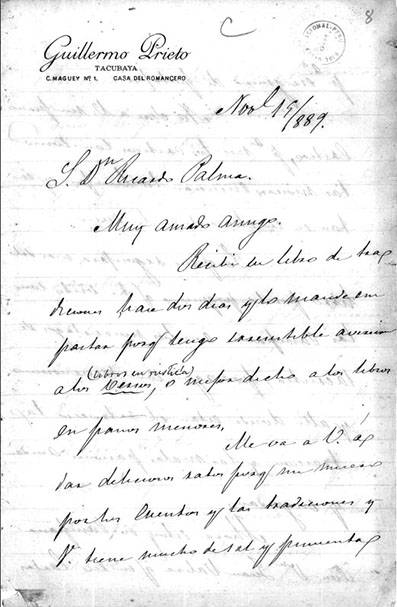 8
Guillermo Prieto
TACUBAYA
C. MAGUEY Nº 1. CASA DEL ROMANCERO
Novl 15/889.
S. Dn Ricardo Palma.
Muy amado amigo.
Recibí su libro de tra
diciones hace dos dias y lo mandé em
pastar porq tengo irresistible aversion
(libros en rustica)
a los , o mejor dicho a los libros
en paños menores.
Me va a V. á
dar deliciosos ratos porq me muero
por los cuentos y las tradiciones y
V. tiene mucho de sal y pimienta